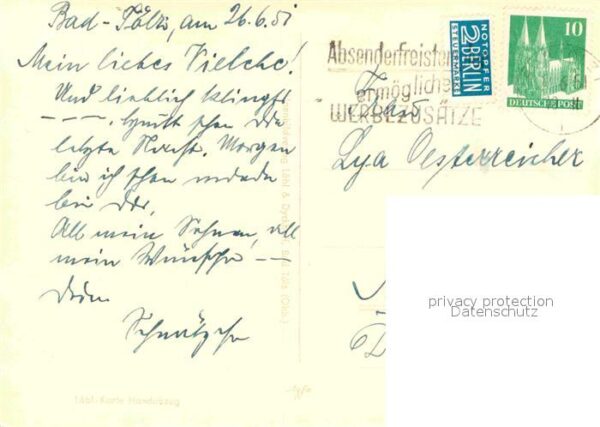 Bad-Tölz, am 26.6.51
Mein liebes Vielche!
Und lieblich klingts
----, heute schon die
letzte Nacht. Morgen
bin ich schon wieder
bei Dir,
All mein Sehnen, all
mein Wünsche --
Dein
Absenderfreistem
ermögliche
WERBEZUSÄTZE
NOTOPFER
2 BERLIN
STEUERMARKE
10
DEUTSCHE POST
Frau
Lya Oesterreicher
privacy protection
Datenschutz